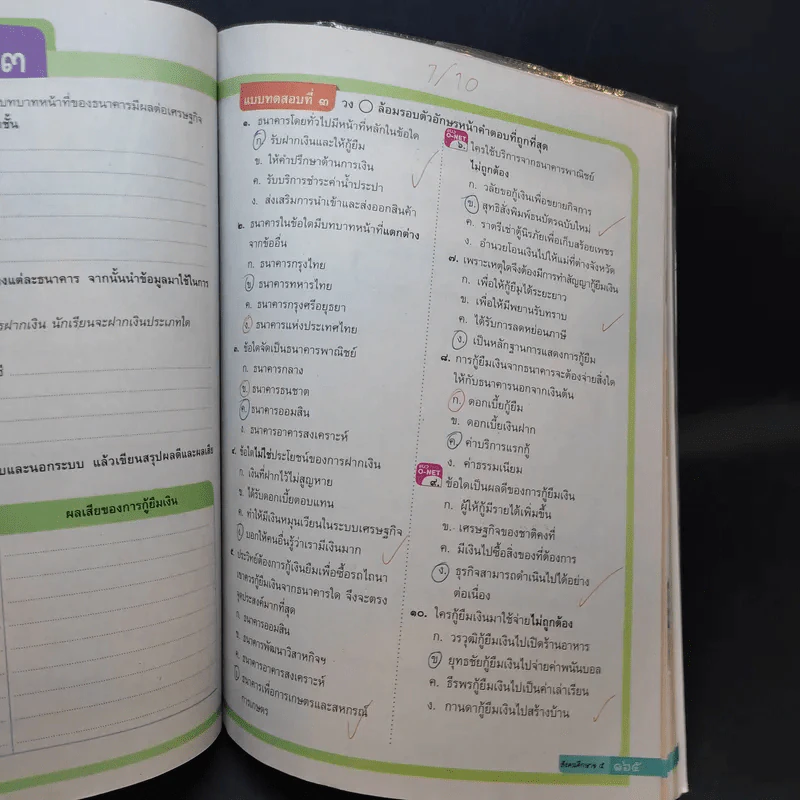 ๓
บทบาทหน้าที่ของธนาคารมีผลต่อเศรษฐกิจ
งแต่ละธนาคาร จากนั้นนำข้อมูลมาใช้ในการ
รฝากเงิน นักเรียนจะฝากเงินประเภทใด
บและนอกระบบ แล้วเขียนสรุปผลดีและผลเสีย
ผลเสียของการกู้ยืมเงิน
7/10
แบบทดสอบที่ ๓ วง ล้อมรอบตัวอักษรหน้าคำตอบที่ถูกที่สุด
๑. ธนาคารโดยทั่วไปมีหน้าที่หลักในข้อใด
ก. รับฝากเงินและให้กู้ยืม
ข. ให้คำปรึกษาด้านการเงิน
ค. รับบริการชำระค่าน้ำประปา
ง. ส่งเสริมการนำเข้าและส่งออกสินค้า
๒. ธนาคารในข้อใดมีบทบาทหน้าที่แตกต่าง
จากข้ออื่น
ก. ธนาคารกรุงไทย
ข. ธนาคารทหารไทย
ค. ธนาคารกรุงศรีอยุธยา
ง. ธนาคารแห่งประเทศไทย
๓. ข้อใดจัดเป็นธนาคารพาณิชย์
ก. ธนาคารกลาง
ข. ธนาคารธนชาต
ค. ธนาคารออมสิน
ง. ธนาคารอาคารสงเคราะห์
๔. ข้อใดไม่ใช่ประโยชน์ของการฝากเงิน
ก. เงินที่ฝากไว้ไม่สูญหาย
ข. ได้รับดอกเบี้ยตอบแทน
ค. ทำให้มีเงินหมุนเวียนในระบบเศรษฐกิจ
ง. บอกให้คนอื่นรู้ว่าเรามีเงินมาก
๕. ประวิทย์ต้องการกู้เงินยืมเพื่อซื้อรถไถนา
เขาควรกู้ยืมเงินจากธนาคารใด จึงจะตรง
จุดประสงค์มากที่สุด
ก. ธนาคารออมสิน
ข. ธนาคารพัฒนาวิสาหกิจฯ
ค. ธนาคารอาคารสงเคราะห์
ง. ธนาคารเพื่อการเกษตรและสหกรณ์
การเกษตร
แนว O-NET
๖. ใครใช้บริการจากธนาคารพาณิชย์
ไม่ถูกต้อง
ก. วลัยขอกู้เงินเพื่อขยายกิจการ
ข. สุทธิสั่งพิมพ์ธนบัตรฉบับใหม่
ค. ราตรีเช่าตู้นิรภัยเพื่อเก็บสร้อยเพชร
ง. อำนวยโอนเงินไปให้แม่ที่ต่างจังหวัด
๗. เพราะเหตุใดจึงต้องมีการทำสัญญากู้ยืมเงิน
ก. เพื่อให้กู้ยืมได้ระยะยาว
ข. เพื่อให้มีพยานรับทราบ
ค. ได้รับการลดหย่อนภาษี
ง. เป็นหลักฐานการแสดงการกู้ยืม
๘. การกู้ยืมเงินจากธนาคารจะต้องจ่ายสิ่งใด
ให้กับธนาคารนอกจากเงินต้น
ก. ดอกเบี้ยกู้ยืม
ข. ดอกเบี้ยเงินฝาก
ค. ค่าบริการแรกกู้
ง. ค่าธรรมเนียม
แนว O-NET
๙. ข้อใดเป็นผลดีของการกู้ยืมเงิน
ก. ผู้ให้กู้มีรายได้เพิ่มขึ้น
ข. เศรษฐกิจของชาติคงที่
ค. มีเงินไปซื้อสิ่งของที่ต้องการ
ง. ธุรกิจสามารถดำเนินไปได้อย่าง
ต่อเนื่อง
๑๐. ใครกู้ยืมเงินมาใช้จ่ายไม่ถูกต้อง
ก. วรวุฒิกู้ยืมเงินไปเปิดร้านอาหาร
ข. ยุทธชัยกู้ยืมเงินไปจ่ายค่าพนันบอล
ค. ธีรพรกู้ยืมเงินไปเป็นค่าเล่าเรียน
ง. กานดากู้ยืมเงินไปสร้างบ้าน
สังคมศึกษาฯ ๕ ๑๖๕